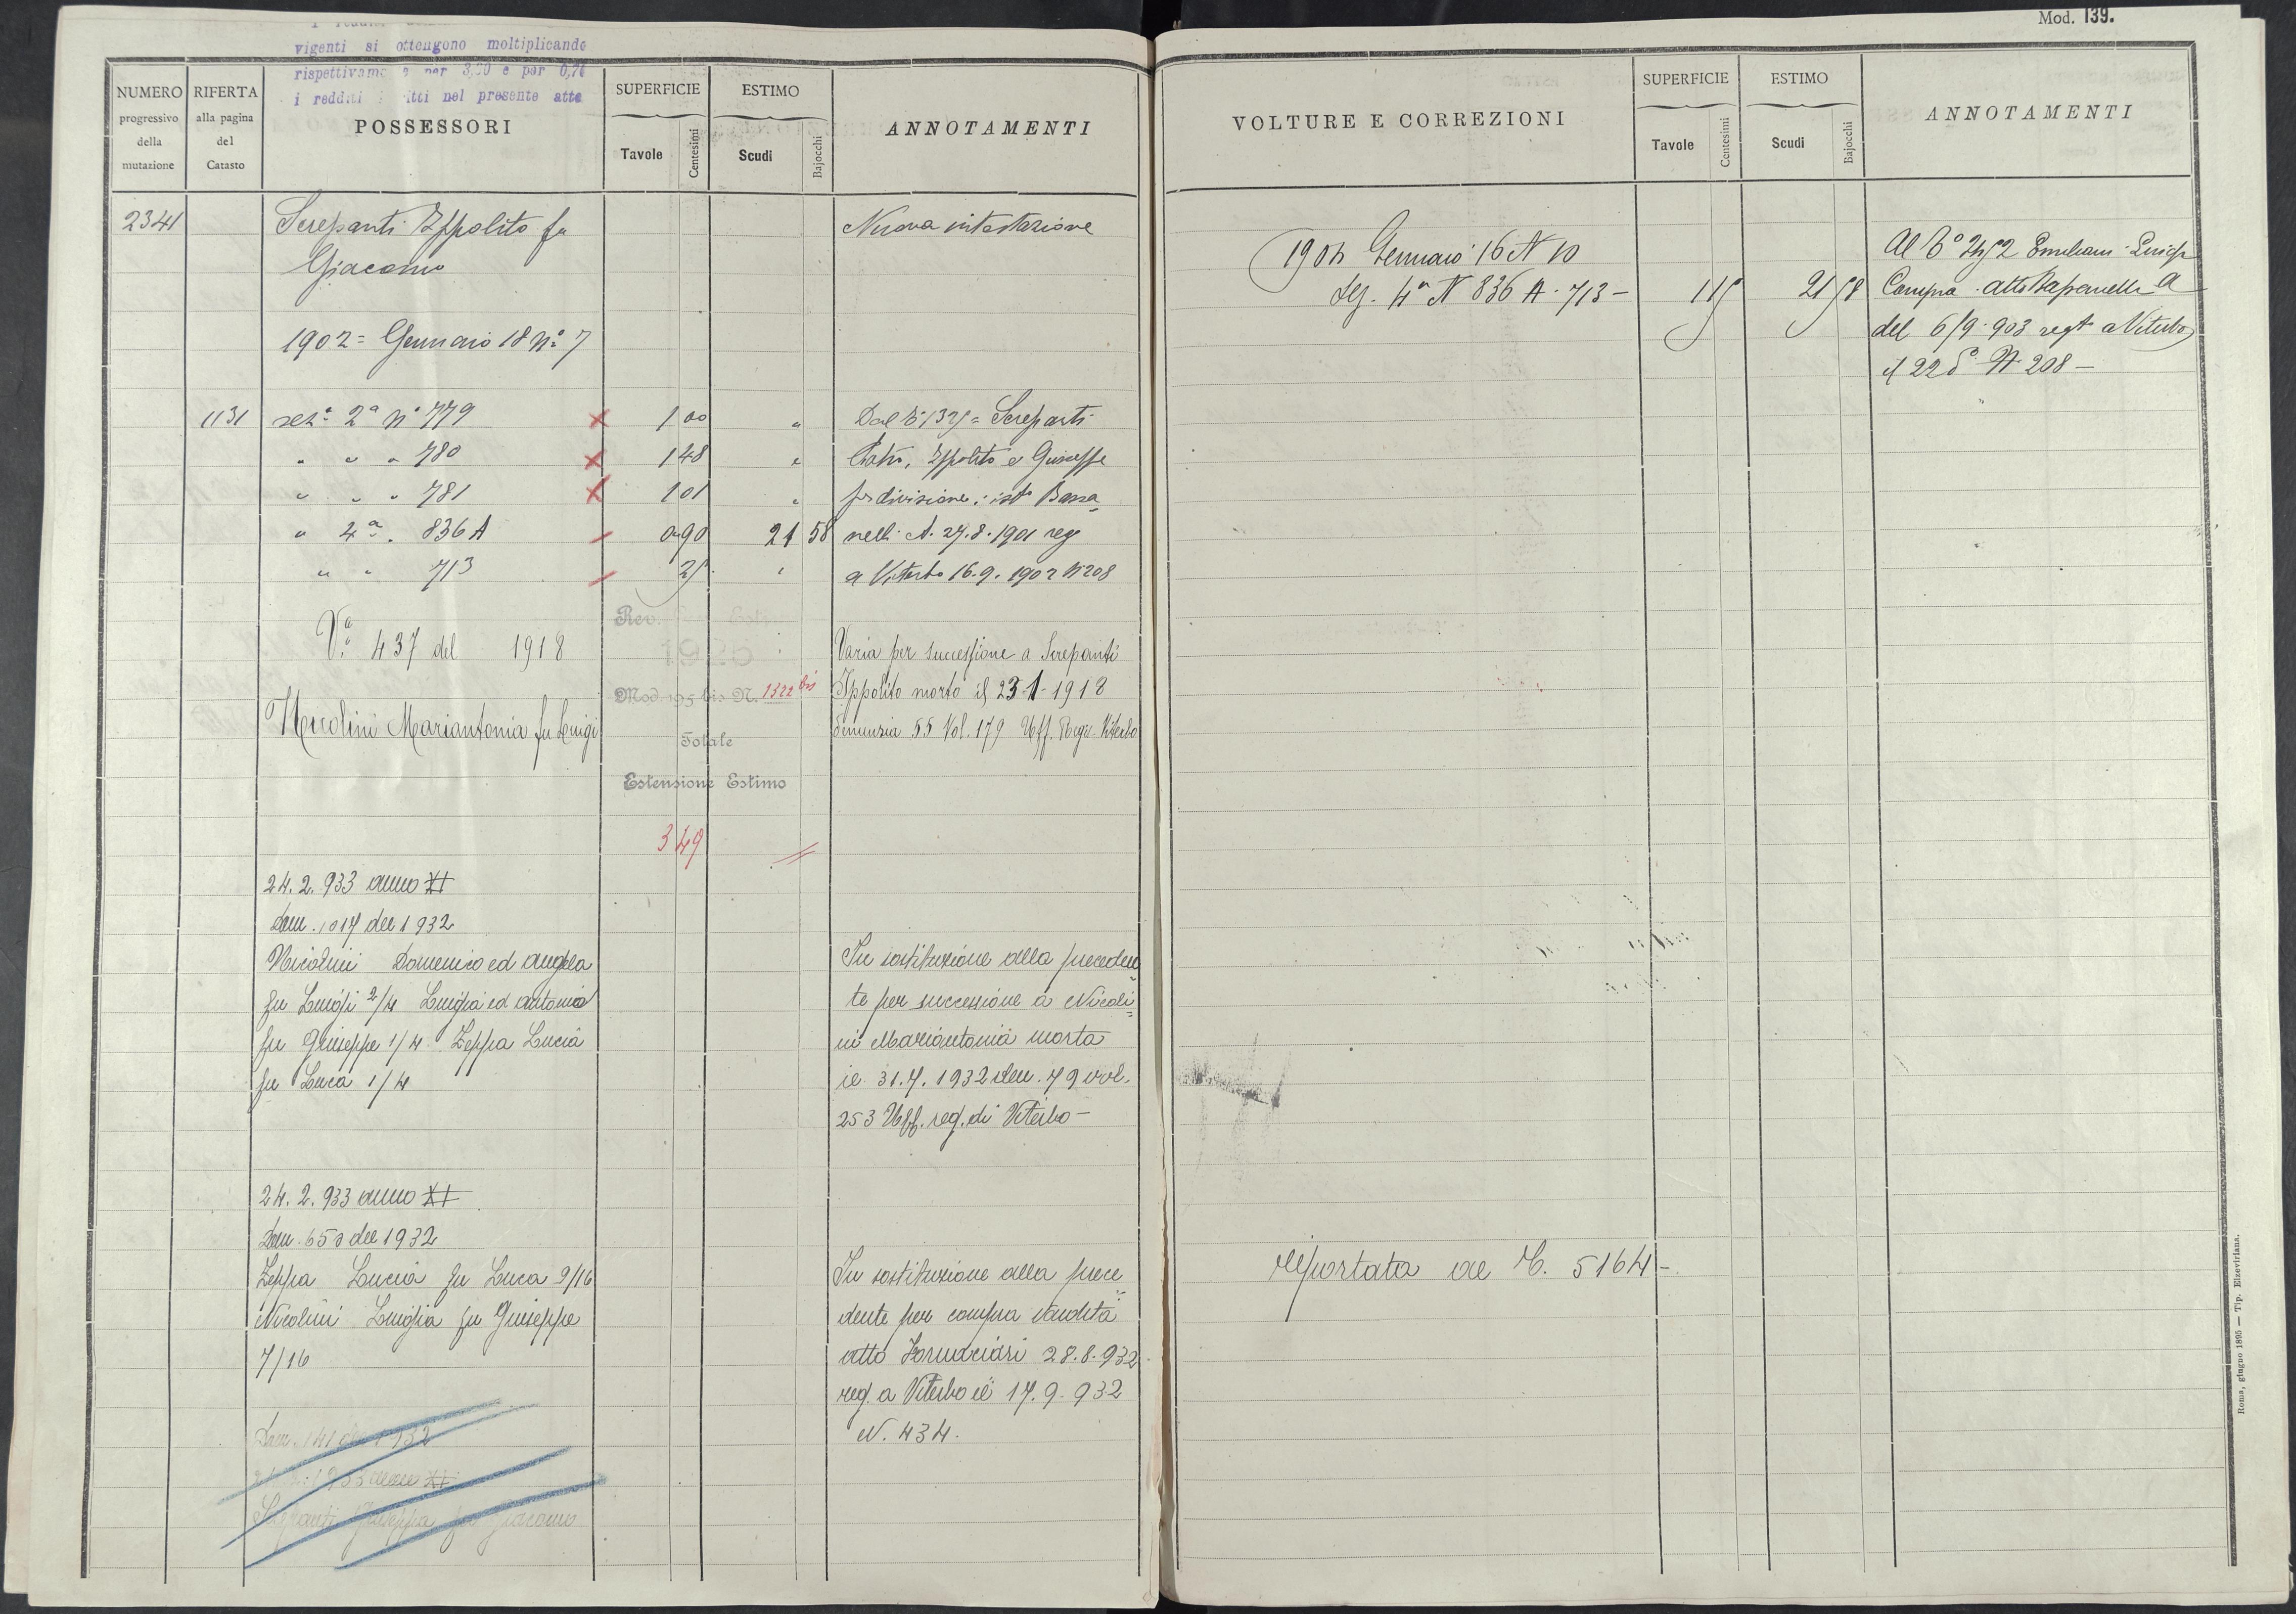 Mod. 139.
vigenti si ottengono moltiplicando
rispettivame e per 3,30 e per 0,74
i redditi itti nel presente atto
NUMERO progressivo della mutazione
RIFERTA alla pagina del Catasto
POSSESSORI
SUPERFICIE
Tavole
Centesimi
ESTIMO
Scudi
Bajocchi
ANNOTAMENTI
2341
Screpanti Ippolito fu
Giacomo
Nuova intestazione
1902 = Gennaio 18 N° 7
1131 sez.e 2a N° 779 × 1 00 "
" " " 780 × 1 48 "
" " " 781 × 1 01 "
" 4a " 836 A 0 90 21 58
" " 713 25 "
Screpanti
Ippolito e Giuseppe
per divisione: ist°
nelli A. 27.8.1901 reg
a Viterbo 16.9.1902 N 208
Va 437 del 1918
Rev.
1926
Mod. 195 bis N. 1322 bis
Nicolini Mariantonia fu Luigi
Totale
Estensione Estimo
3 49
Varia per successione a Screpanti
Ippolito morto il 23-1-1918
denunzia 55 Vol. 179 Uff. Regis. Viterbo
24.2.933 anno XI
Dom. 1017 del 1932
Nicolini Domenico ed Angela
fu Luigi 2/4 Luigia ed Antonia
fu Giuseppe 1/4 Zeppa Lucia
fu Luca 1/4
In sostituzione alla preceden
te per successione a Nicoli
ni Mariantonia morta
il 31.7.1932 den. 79 vol.
253 Uff. reg. di Viterbo -
24.2.933 anno XI
Dom. 650 del 1932
Zeppa Lucia fu Luca 9/16
Nicolini Luigia fu Giuseppe
7/16
In sostituzione alla prece
dente per compra vendita
atto Fornaciari 28.8.932
reg. a Viterbo il 17.9.932
N. 434.
Dom. 141 del 1932
1933 anno XI
Screpanti Giuseppa fu Giacomo
VOLTURE E CORREZIONI
SUPERFICIE
Tavole
Centesimi
ESTIMO
Scudi
Bajocchi
ANNOTAMENTI
1904 Gennaio 16 N 10
Sez. 4a N 836 A - 713 - 1 15 21 58
Emiliani Luigi
Compra atto
del 6/9.903 regt a Viterbo
il 22 do N 208 -
Riportata al C. 5164 -
Roma, giugno 1895 — Tip. Elzeviriana.